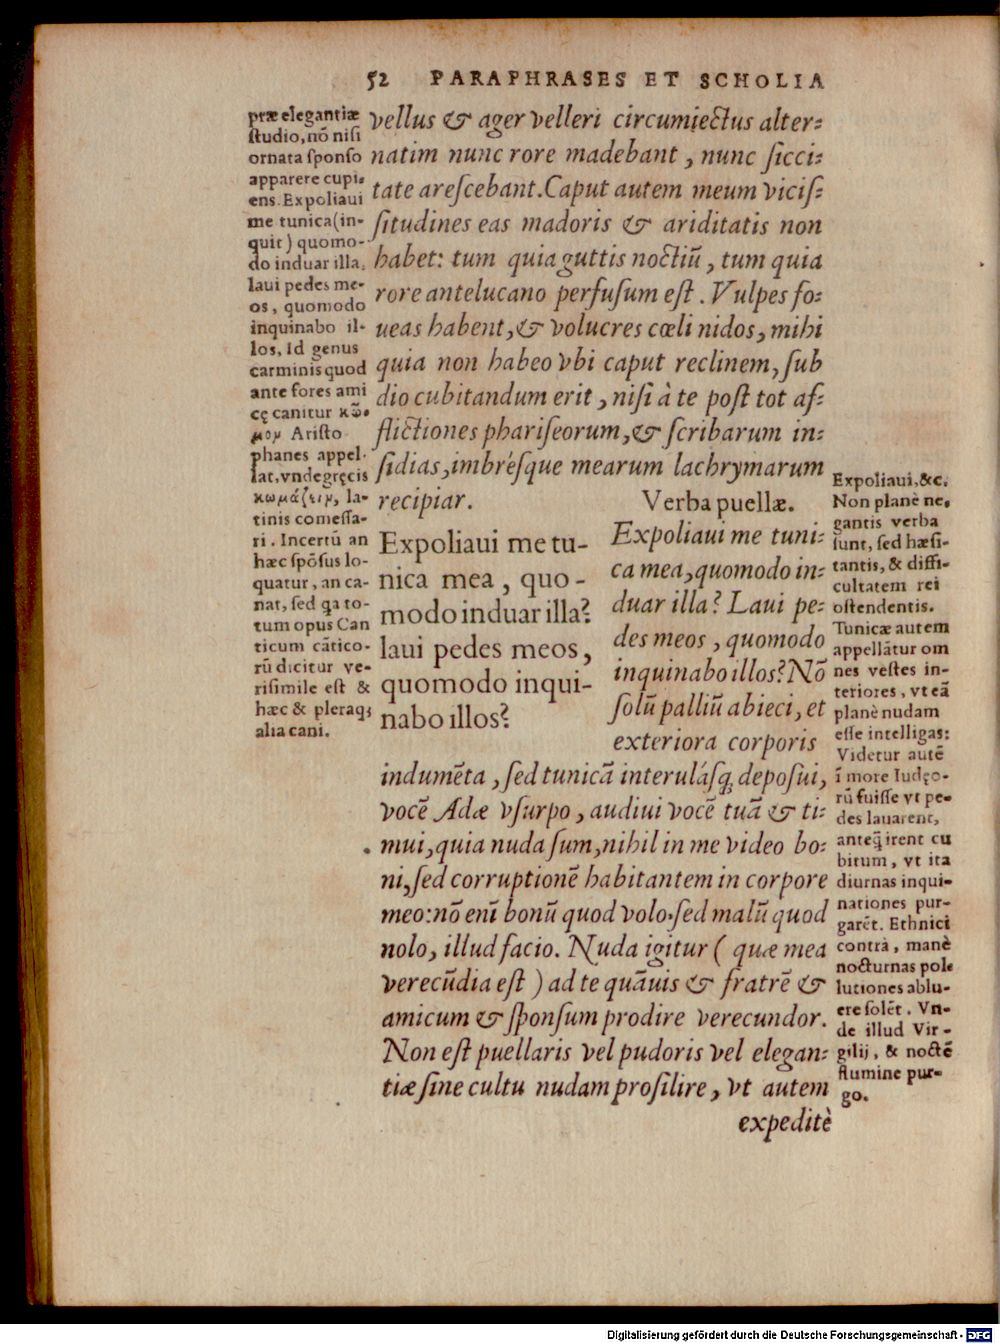 52 PARAPHRASES ET SCHOLIA
præ elegantiæ
ſtudio, nō niſi
ornata ſponſo
apparere cupi-
ens. Expoliaui
me tunica (in-
quit) quomo-
do induar illa,
laui pedes me-
os, quomodo
inquinabo il-
los, Id genus
carminis quod
ante fores ami
cę canitur κῶ-
μον Ariſto
phanes appel-
lat, vnde gręcis
κωμάζειν, la-
tinis comeſſa-
ri. Incertū an
hæc ſpōſus lo-
quatur, an ca-
nat, ſed qa to-
tum opus Can
ticum cātico-
rū dicitur ve-
riſimile eſt &
hæc & pleraqꝫ
alia cani.
vellus & ager velleri circumiectus alter-
natim nunc rore madebant, nunc ſicci-
tate areſcebant. Caput autem meum viciſ-
ſitudines eas madoris & ariditatis non
habet: tum quia guttis noctiū, tum quia
rore antelucano perfuſum eſt. Vulpes fo-
ueas habent, & volucres cœli nidos, mihi
quia non habeo vbi caput reclinem, ſub
dio cubitandum erit, niſi à te poſt tot af-
flictiones phariſeorum, & ſcribarum in-
ſidias, imbréſque mearum lachrymarum
recipiar.
Expoliaui me tu-
nica mea, quo-
modo induar illa?
laui pedes meos,
quomodo inqui-
nabo illos?
Verba puellæ.
Expoliaui me tuni-
ca mea, quomodo in-
duar illa? Laui pe-
des meos, quomodo
inquinabo illos? Nō
ſolū palliū abieci, et
exteriora corporis
indumēta, ſed tunicā interuláſq; depoſui,
vocē Adæ vſurpo, audiui vocē tuā & ti-
mui, quia nuda ſum, nihil in me video bo-
ni, ſed corruptionē habitantem in corpore
meo: nō enī bonū quod volo, ſed malū quod
nolo, illud facio. Nuda igitur ( quæ mea
verecūdia eſt ) ad te quāuis & fratrē &
amicum & ſponſum prodire verecundor.
Non eſt puellaris vel pudoris vel elegan-
tiæ ſine cultu nudam proſilire, vt autem
expeditè
Expoliaui, &c.
Non planè ne-
gantis verba
ſunt, ſed hæſi-
tantis, & diffi-
cultatem rei
oſtendentis.
Tunicæ autem
appellātur om
nes veſtes in-
teriores, vt eā
planè nudam
eſſe intelligas:
Videtur autē
ī more Iudęo-
rū fuiſſe vt pe-
des lauarent,
anteq̃ irent cu
bitum, vt ita
diurnas inqui-
nationes pur-
garēt. Ethnici
contrà, manè
nocturnas pol-
lutiones ablu-
ere ſolēt. Vn-
de illud Vir-
gilij, & noctē
flumine pur-
go.
Digitalisierung gefördert durch die Deutsche Forschungsgemeinschaft - DFG